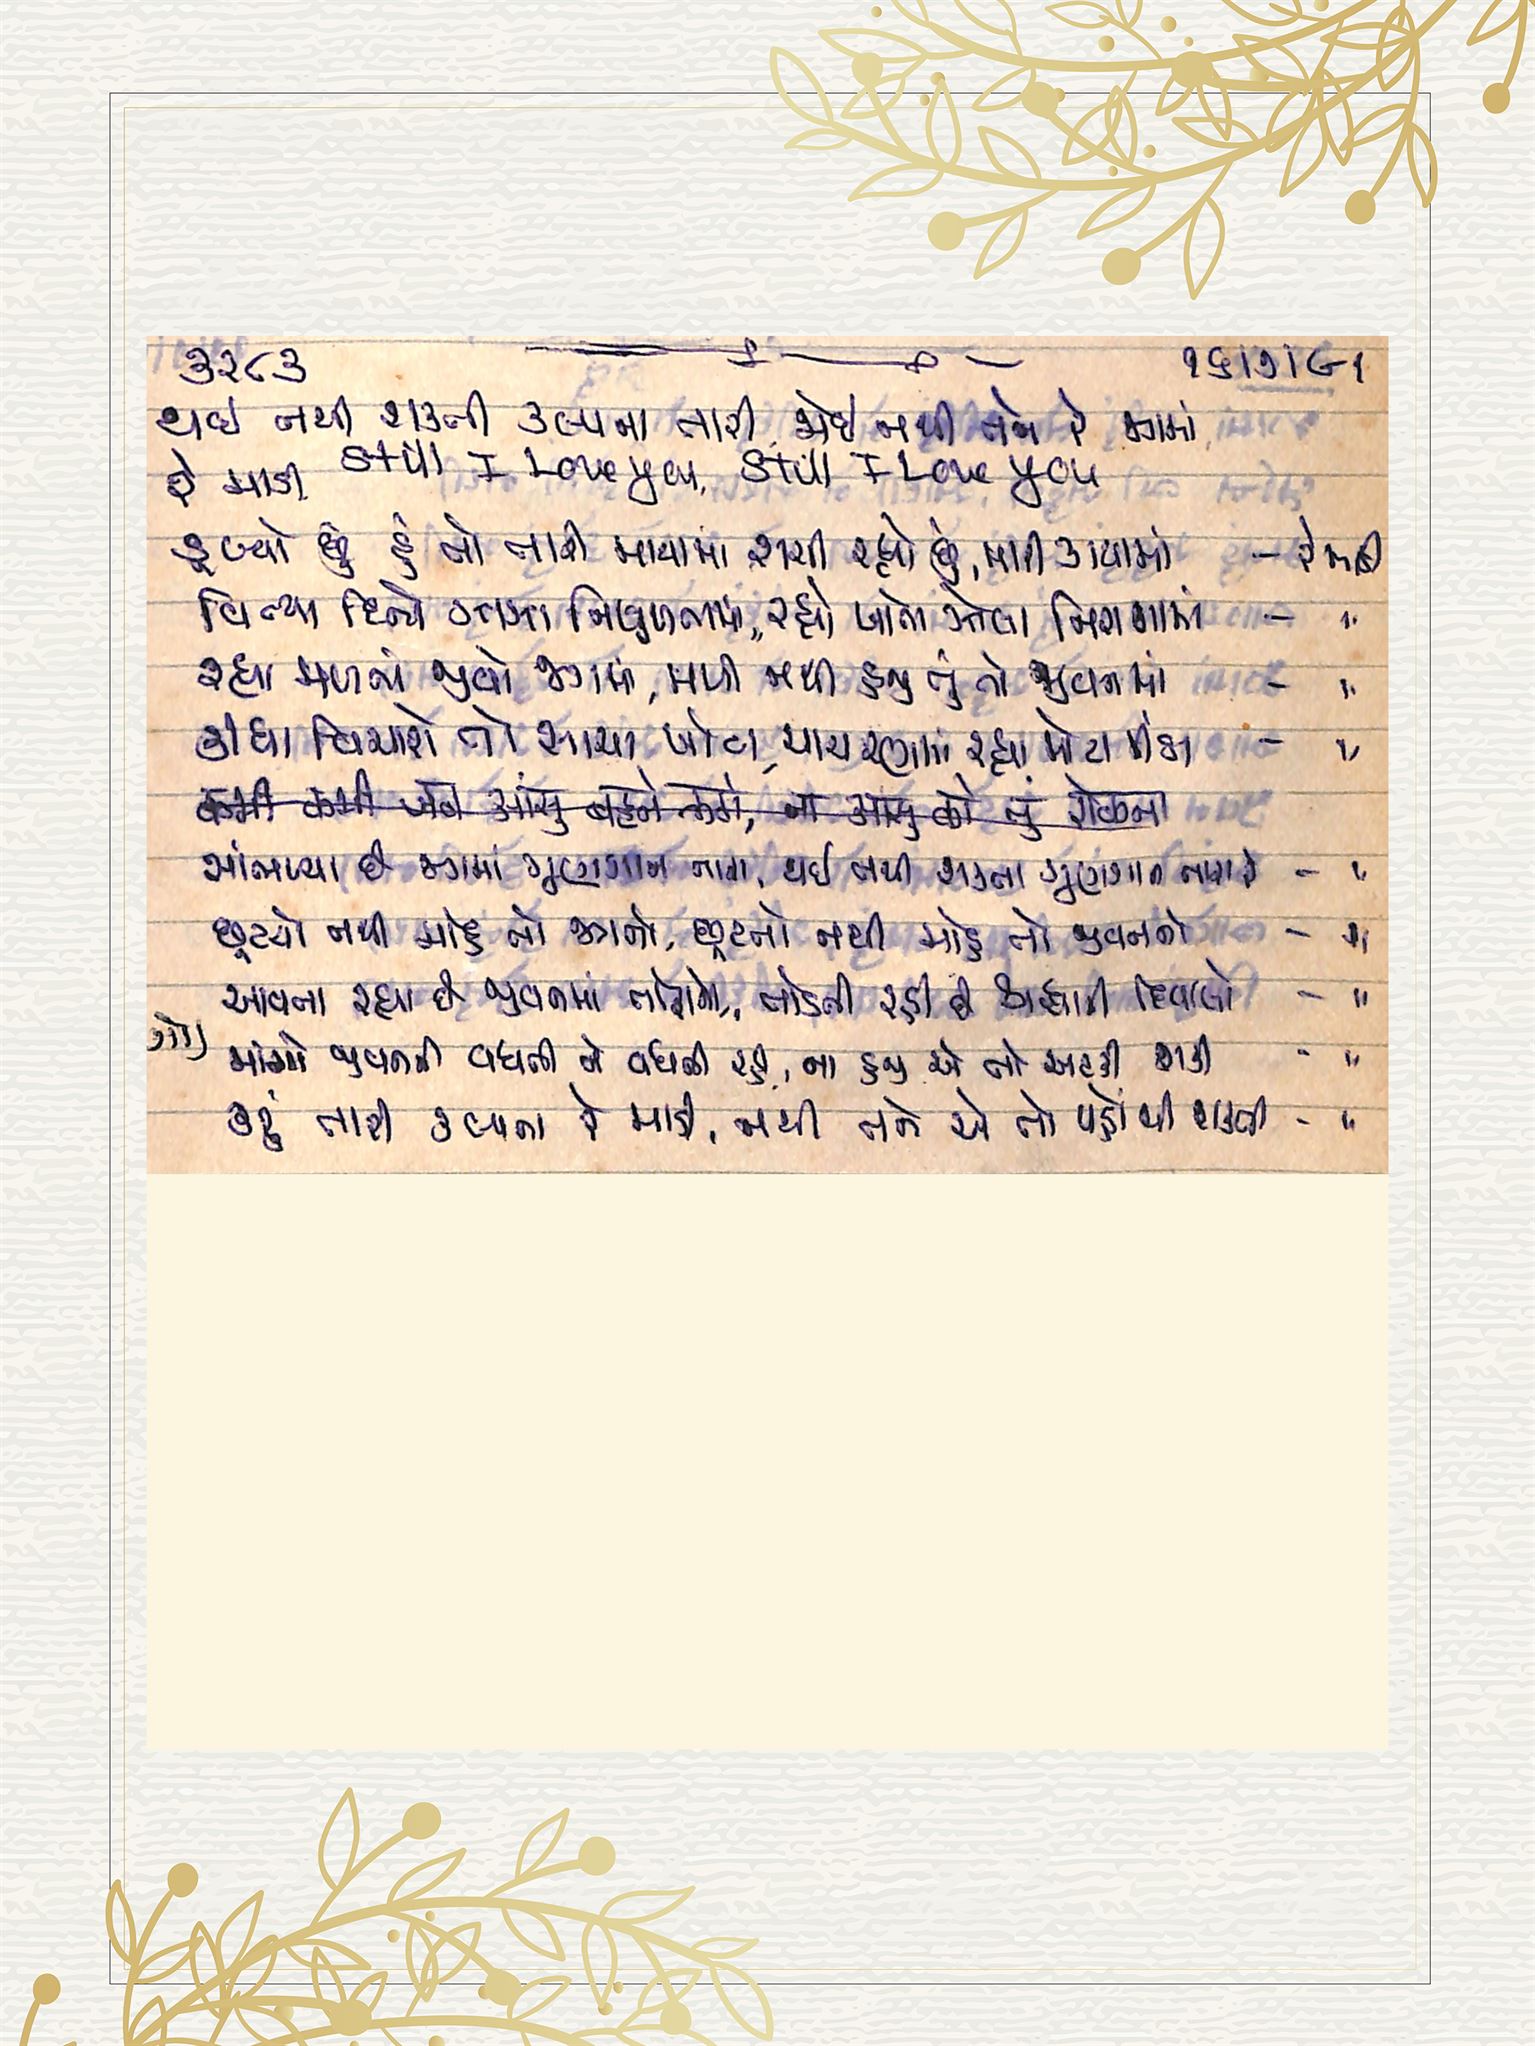 ૩૨૮૩ ૧૬।૭।૯૧
થઈ નથી શકતી કલ્પના તારી, જોઈ નથી તને રે જગમાં
રે માડી Still I Love you, Still I Love you
ડૂબ્યો છું હું તો તારી માયામાં રાચી રહ્યો છું, મારી કાયામાં - રે માડી
વિત્યા દિનો નિષ્ફળતામાં, રહ્યો નિરાશામાં - "
રહ્યા મળતાં જીવો જગમાં, મળી નથી હજી તું તો જીવનમાં - "
કીધા વિચારો તો સાચા ખોટા, રહ્યાં મોટા - "
કભી કભી જબ આંસુ બહને લગે, ના આંસુ કો તું રોકના
સાંભળ્યા છે જગમાં ગુણગાન તારા, થઈ નથી શકતા ગુણગાન તારા રે - "
છૂટયો નથી મોહ તો જગનો, છૂટતો નથી મોહ તો જીવનનો - "
આવતા રહ્યા છે જીવનમાં તોફાનો, તોડતી રહી છે શ્રદ્ધાની દિવાલો - "
માંગો જીવનની વધતી ને વધતી રહી, ના હજી એ તો અટકી શકી - "
કરું તારી કલ્પના રે માડી, નથી તને એ તો પહોંચી શકતી - "